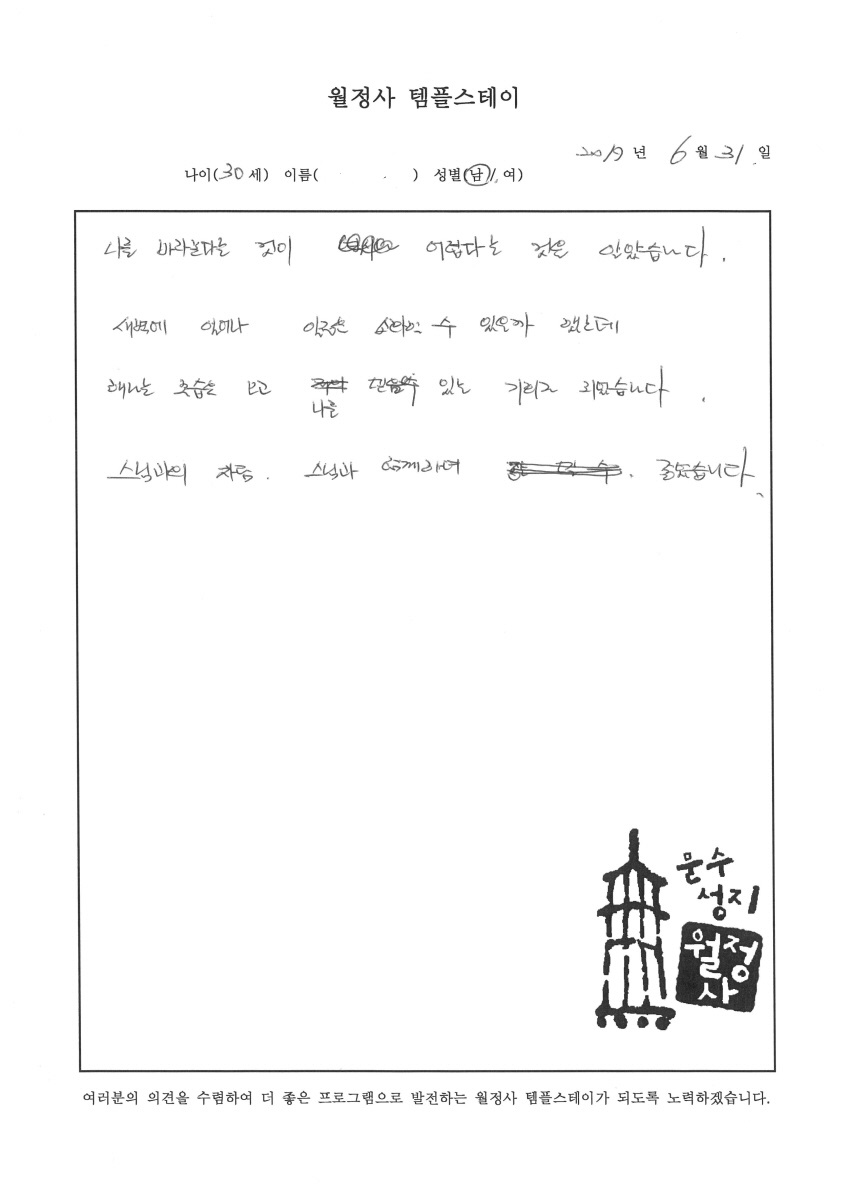 월정사 템플스테이
2019 년 6 월 31 일
나이(30 세) 이름( ) 성별(남/여)
나를 바라본다는 것이 어렵다는 것을 알았습니다.
새벽에 일어나 일출을 수 있을까 했는데
해뜨는 모습을 보고 나를 있는 되었습니다.
스님과의 차담. 스님과 함께하며 좋았습니다.
문수
성지
월정
사
여러분의 의견을 수렴하여 더 좋은 프로그램으로 발전하는 월정사 템플스테이가 되도록 노력하겠습니다.